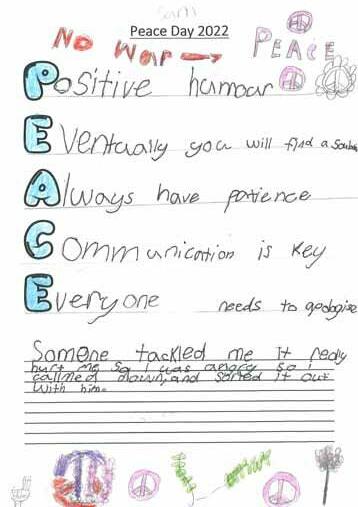 Sam
Peace Day 2022
No War PEACE
Positive humour
Eventually you will find a
Always have patience
Communication is key
Everyone needs to apologise
Someone tackled me It redly
hurt me so I was angry so i
callmed down, and sorted it out
with him.